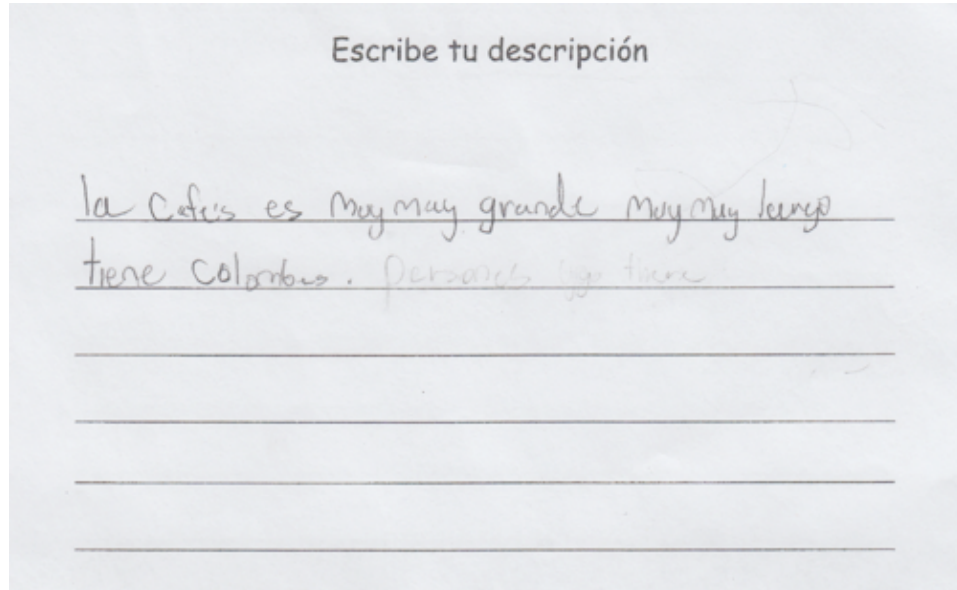 Escribe tu descripción
la Cafe's es muy muy grande muy muy
tiene Colombus. personas go there